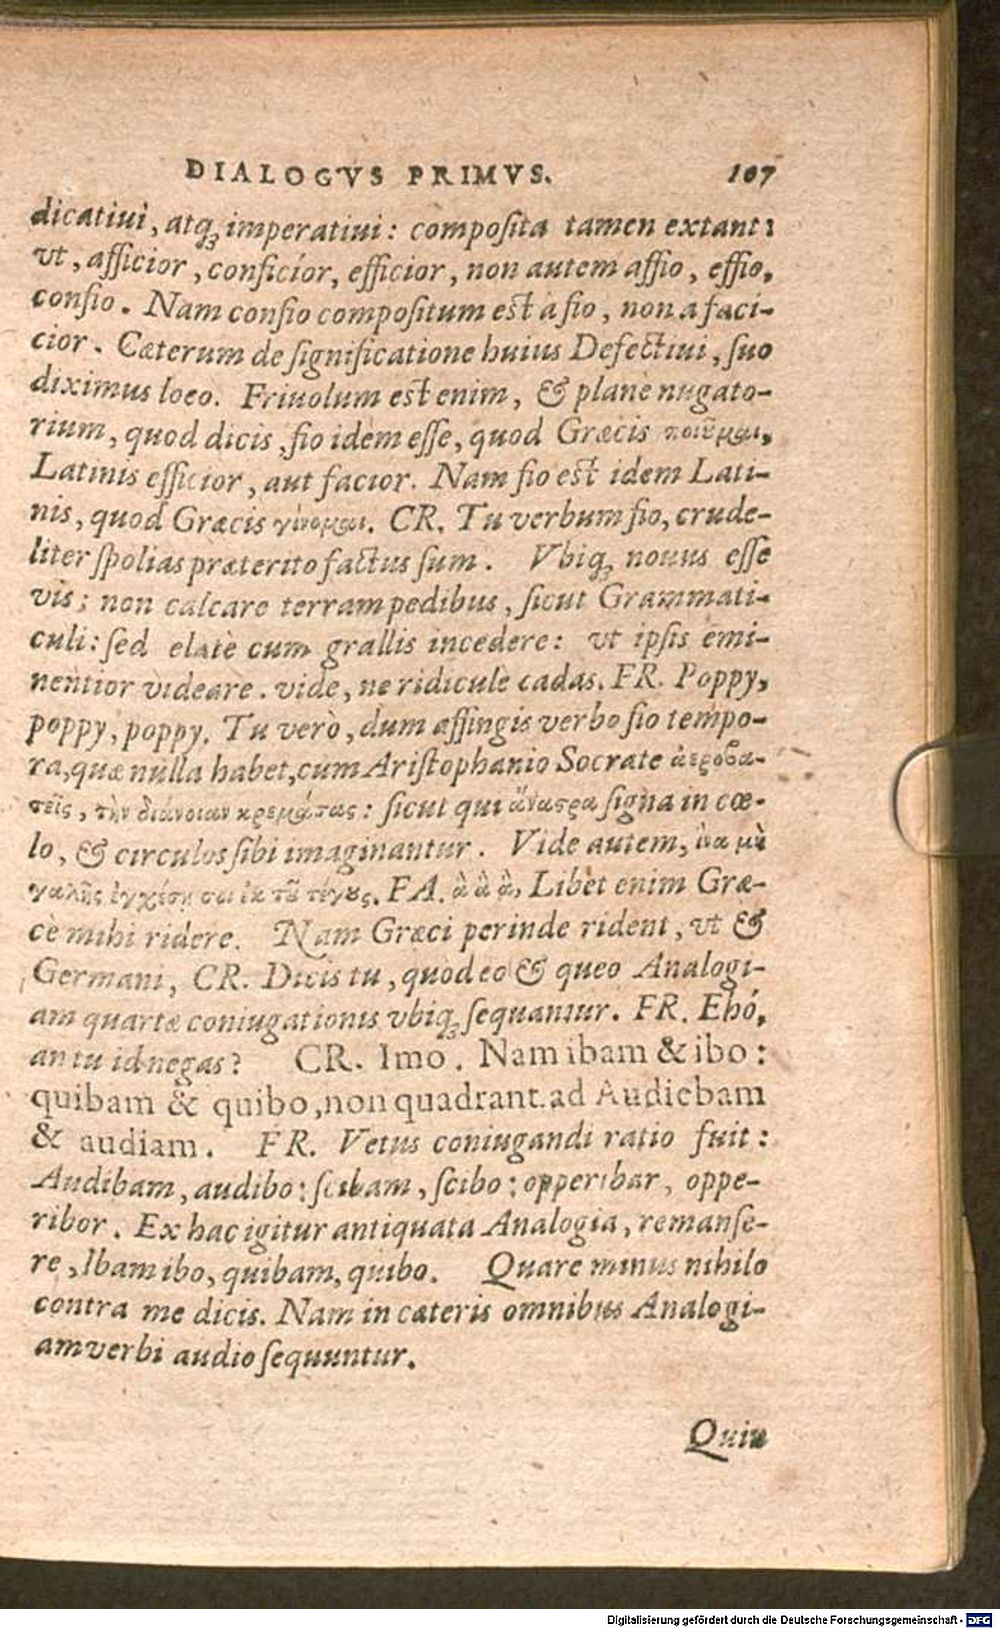 DIALOGVS PRIMVS. 107
dicatiui, atq; imperatiui: composita tamen extant:
vt, afficior, conficior, efficior, non autem affio, effio,
confio. Nam confio compositum est à fio, non a faci-
cior. Cæterum de significatione huius Defectiui, suo
diximus loco. Friuolum est enim, & planè nugato-
rium, quod dicis, fio idem esse, quod Græcis ποιῦμαι,
Latinis efficior, aut facior. Nam fio est idem Lati-
nis, quod Græcis γίνομαι. CR. Tu verbum fio, crude-
liter spolias præterito factus sum. Vbiq; nouus esse
vis: non calcare terram pedibus, sicut Grammati-
culi: sed elatè cum grallis incedere: vt ipsis emi-
nentior videare. vide, ne ridiculè cadas. FR. Poppy,
poppy, poppy. Tu verò, dum affingis verbo fio tempo-
ra, quæ nulla habet, cum Aristophanio Socrate ἀεροβα-
τεῖς, τὴν διάνοιαν κρεμάσας: sicut qui ἄναστρα signa in cœ-
lo, & circulos sibi imaginantur. Vide autem, ἵνα μὴ
γαλῆς ἐγχέσῃ σοι ἐκ τῦ τέγους. FA. ἃ ἃ ἃ, Libet enim Græ-
cè mihi ridere. Nam Græci perinde rident, vt &
Germani, CR. Dicis tu, quòd eo & queo Analogi-
am quartæ coniugationis vbiq; sequantur. FR. Ehó,
an tu id negas? CR. Imo. Nam ibam & ibo:
quibam & quibo, non quadrant ad Audiebam
& audiam. FR. Vetus coniugandi ratio fuit:
Audibam, audibo: scibam, scibo: opperibar, oppe-
ribor. Ex hac igitur antiquata Analogia, remanse-
re, Ibam ibo, quibam, quibo. Quare minus nihilo
contra me dicis. Nam in cæteris omnibus Analogi-
am verbi audio sequuntur.
Quin
Digitalisierung gefördert durch die Deutsche Forschungsgemeinschaft - DFG